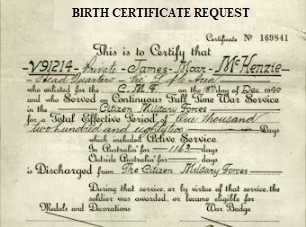 BIRTH CERTIFICATE REQUEST
Certificate No 169841
This is to Certify that
V91214 Private James McKenzie
Head Quarters
who enlisted for the C.M.F. on the Dec 1940
and who Served on Continuous Full Time War Service
in the Citizen Military Forces
for a Total Effective Period of One thousand
two hundred and eighty two Days
which included Active Service
In Australia for 1163 days
Outside Australia for days
is Discharged from The Citizen Military Forces
During that service, or by virtue of that service, the
soldier was awarded, or became eligible for
Medals and Decorations War Badge